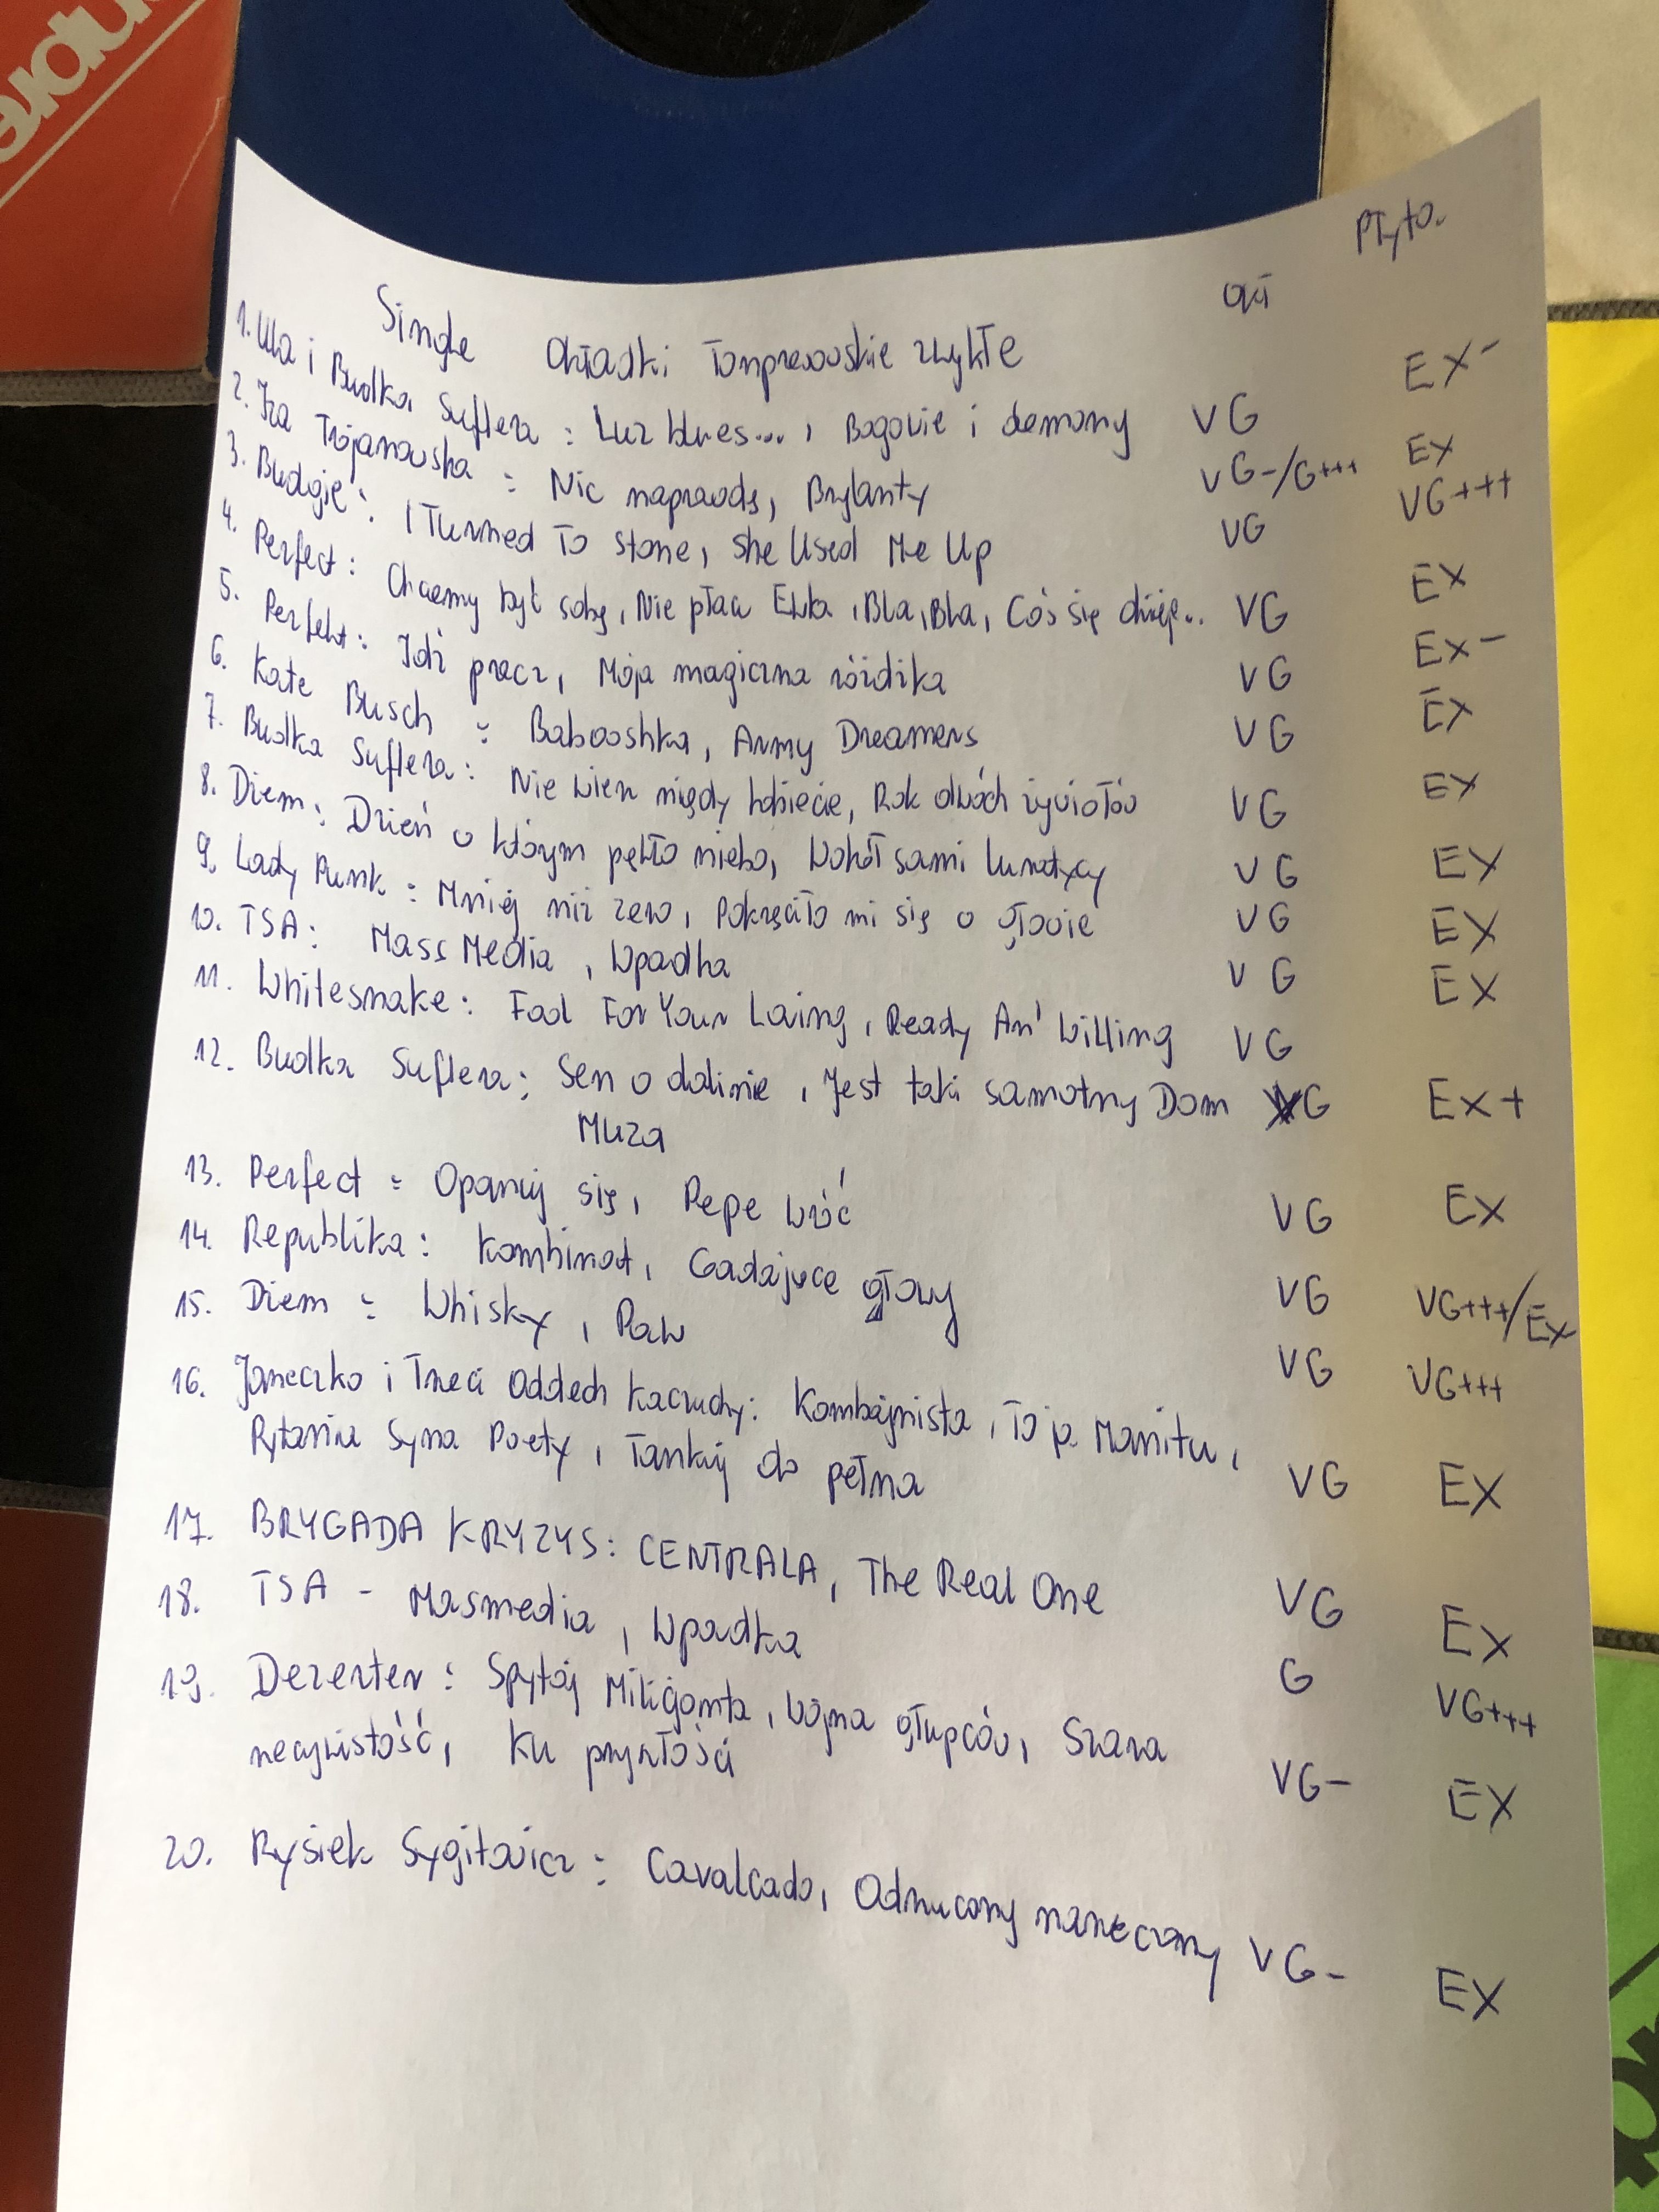 Płyta
Single Okładki Tonpressowskie zwykłe okł
1. Ula i Budka Suflera : Luz blues..., Bogowie i demony VG EX-
2. Iza Trojanowska : Nic naprawdę, Brylanty VG-/G+++ EX
3. Budgie : I Turned To Stone, She Used Me Up VG VG+++
4. Perfect : Chcemy być sobą, Nie płacz Ewka, Bla, Bla, Coś się dzieje.. VG EX
5. Perfekt : Idź precz, Moja magiczna różdżka VG EX-
6. Kate Busch : Babooshka, Army Dreamers VG EX
7. Budka Suflera : Nie wierz nigdy kobiecie, Rok dwóch żywiołów VG EX
8. Dżem : Dzień w którym pękło niebo, Wokół sami lunatycy VG EX
9. Lady Punk : Mniej niż zero, Pokręciło mi się w głowie VG EX
10. TSA : Mass Media, Wpadka VG EX
11. Whitesnake : Fool For Your Loving, Ready An' Willing VG
12. Budka Suflera : Sen o dolinie, Jest taki samotny Dom G EX+
Muza
13. Perfect : Opanuj się, Pepe wróć VG EX
14. Republika : Kombinat, Gadające głowy VG VG+++/EX
15. Dżem : Whisky, Paw VG VG+++
16. Janeczko i Trzeci Oddech Kaczuchy : Kombajnista, To ja Manitu,
Pytania Syna Poety, Tankuj do pełna VG EX
17. BRYGADA KRYZYS : CENTRALA, The Real One VG EX
18. TSA - Masmedia, Wpadka G VG+++
19. Dezerter : Spytaj Milicjanta, Wojna głupców, Szara
rzeczywistość, Ku przyszłości VG- EX
20. Rysiek Sygitowicz : Cavalcado, Odrzucony narzeczony VG- EX